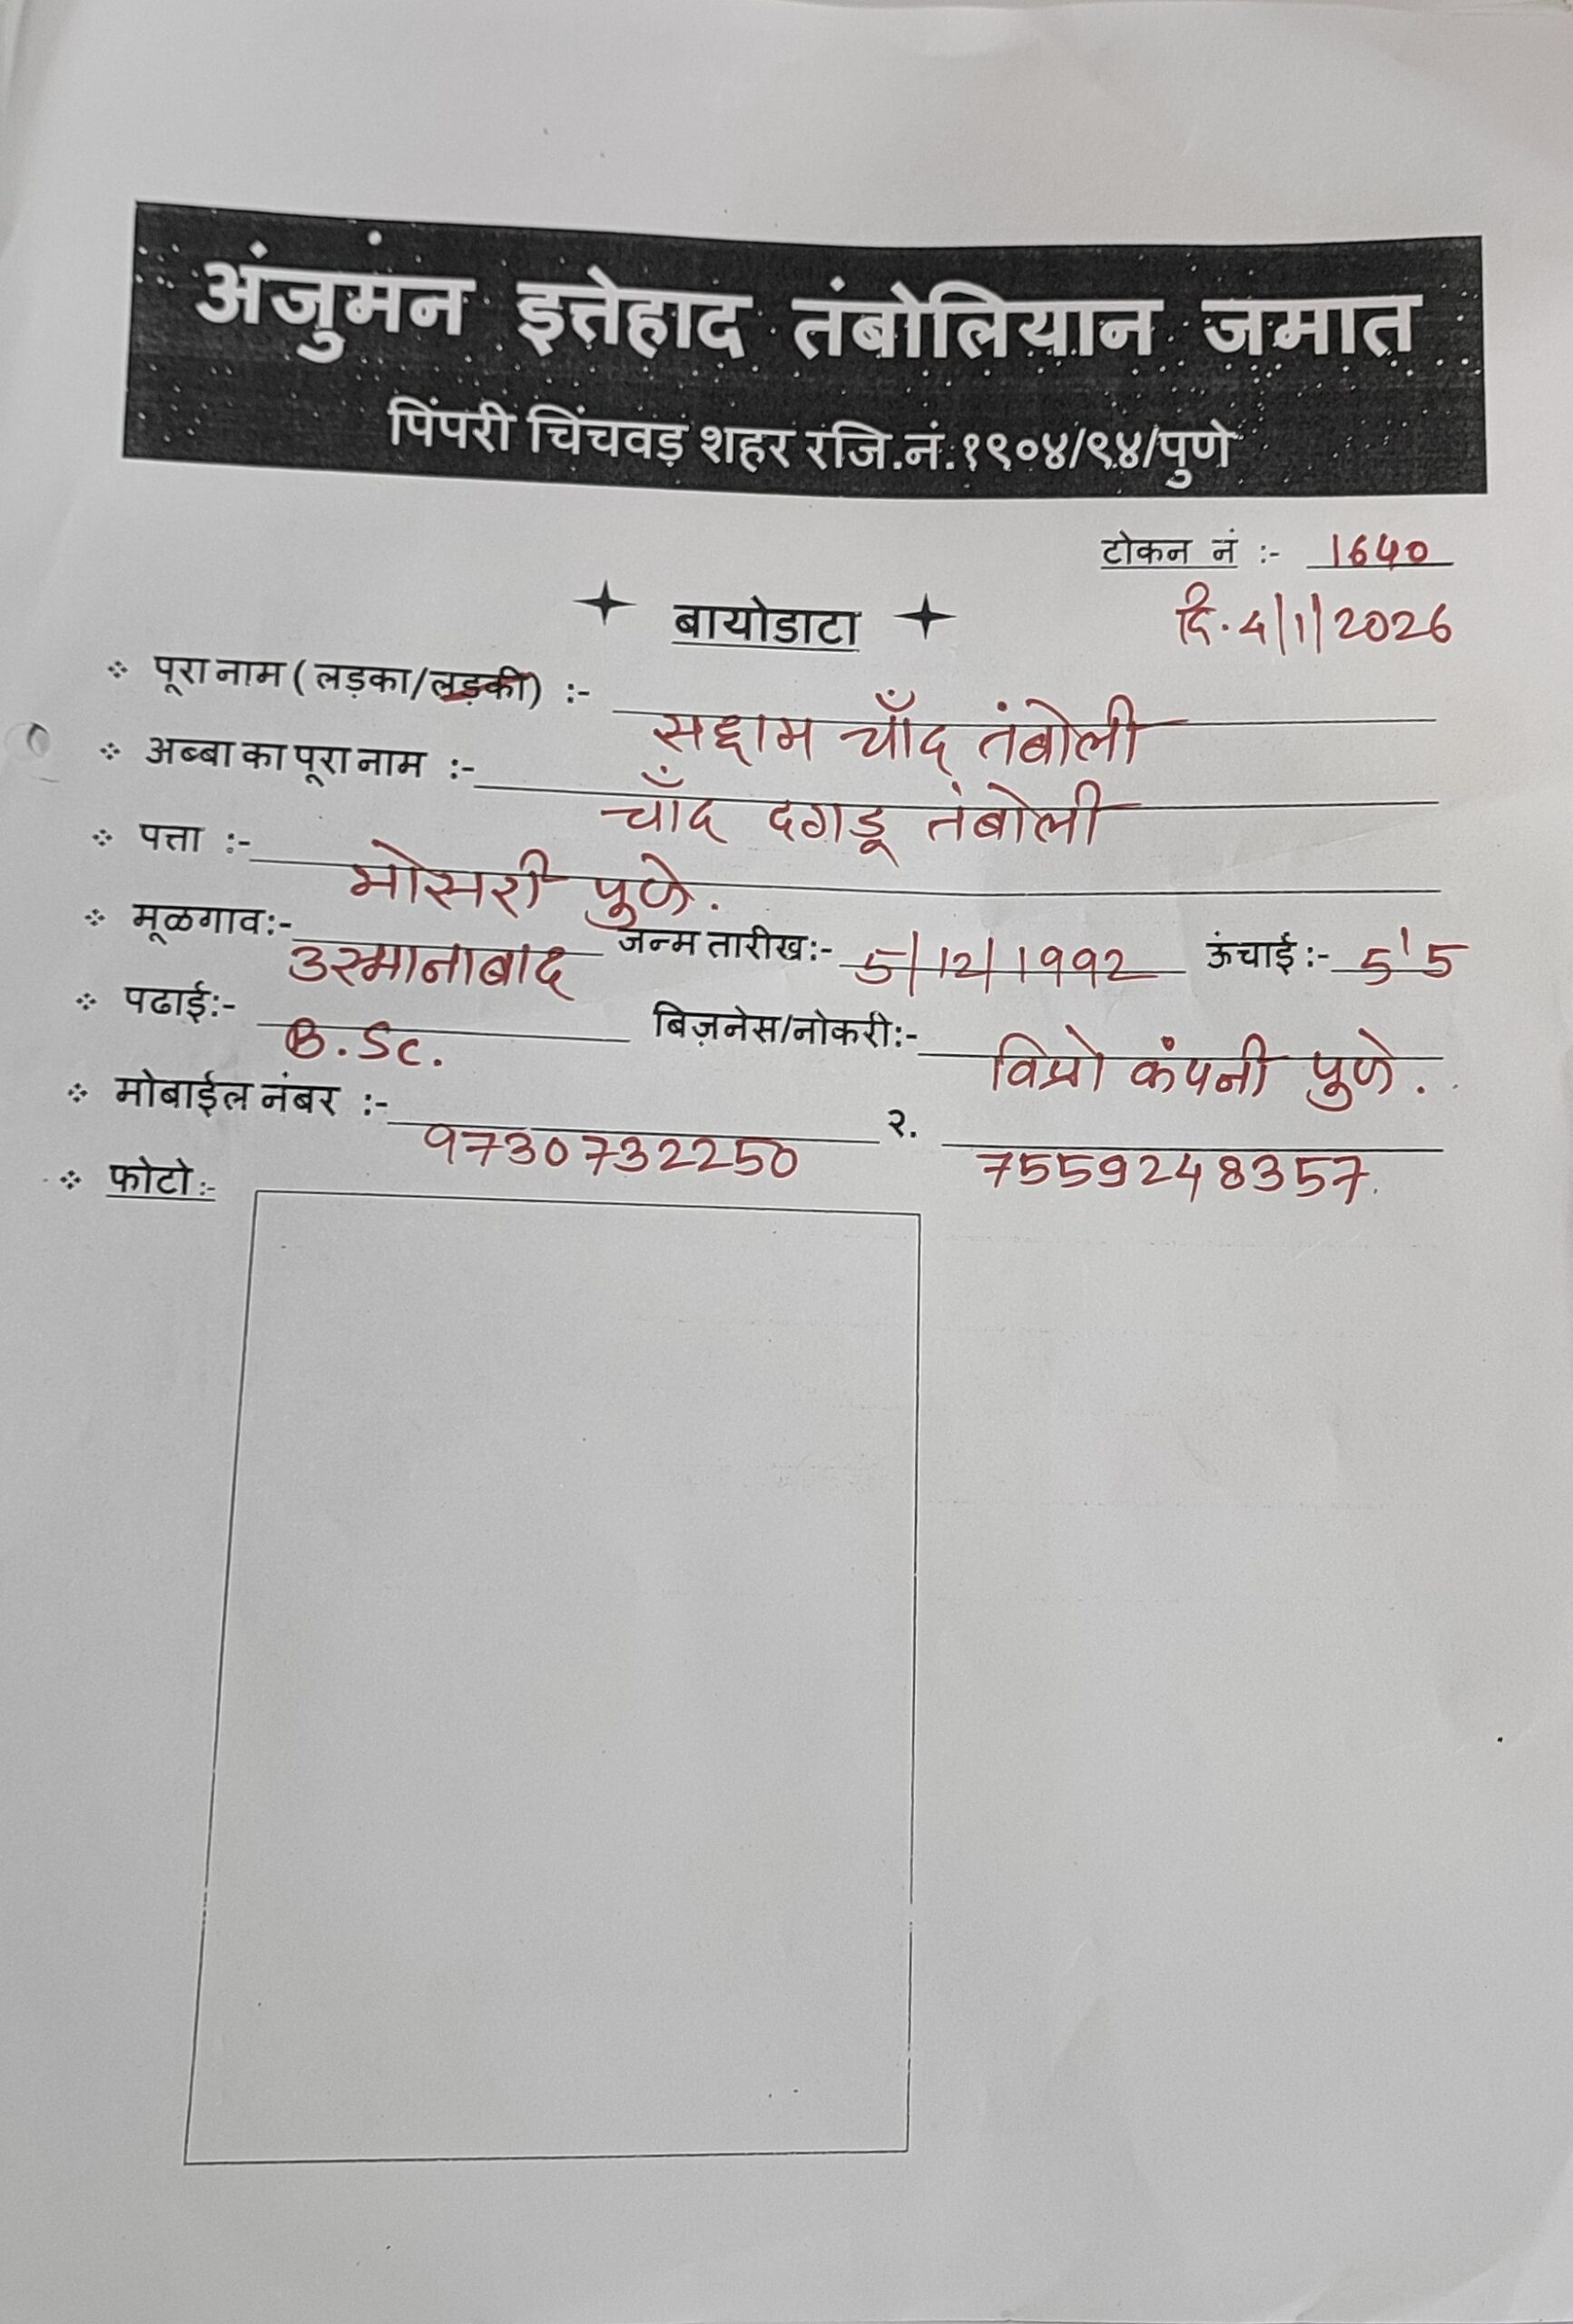 अंजुमंन इत्तेहाद तंबोलियान जमात
पिंपरी चिंचवड़ शहर रजि.नं.१९०४/९४/पुणे
टोकन नं :- 1640
बायोडाटा दि. 4/1/2026
पूरा नाम ( लड़का/लड़की) :- सद्दाम चाँद तंबोली
अब्बा का पूरा नाम :- चाँद दगडू तंबोली
पत्ता :- भोसरी पुणे.
मूळगाव:- उस्मानाबाद जन्म तारीख:- 5/12/1992 ऊंचाई :- 5'5
पढाई:- B.Sc. बिज़नेस/नोकरी:- विप्रो कंपनी पुणे.
मोबाईल नंबर :- 9730732250 २. 7559248357.
फोटो :-